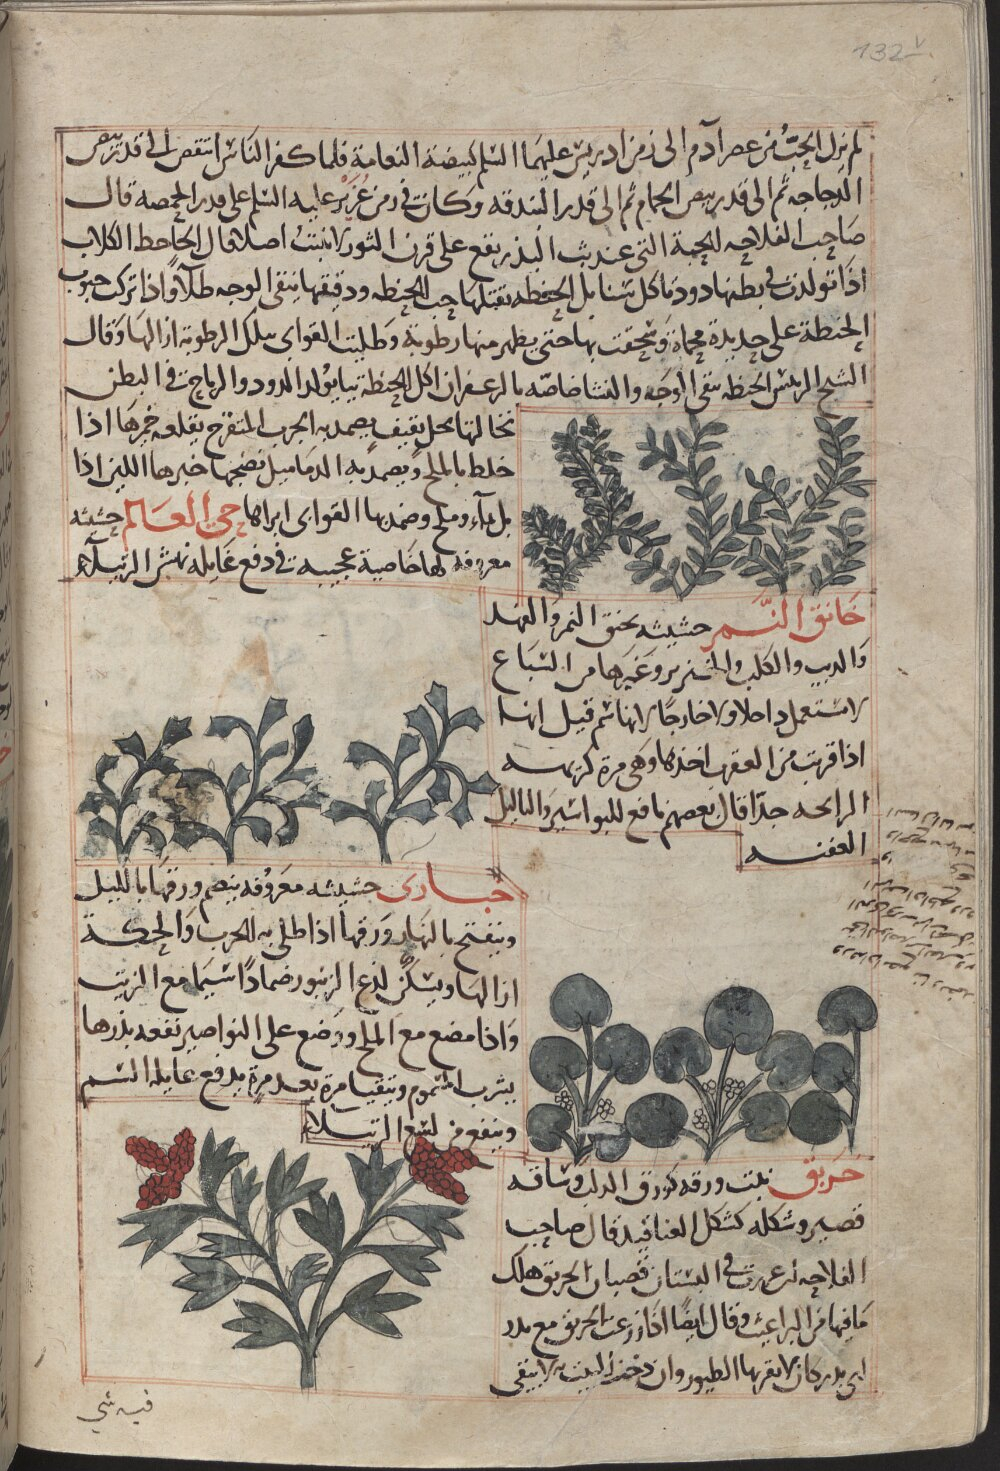 132v
لم يزل الحبّ من عصر آدم الى زمن ادريس عليهما السلم كبيضة النعامة فلما كفر الناس انتقص الى قدر بيض
الدجاجة ثم الى قدر بيض الحمام ثم الى قدر البندقة وكان فى زمن عزير عليه السلم على قدر الحمصة قال
صاحب الفلاحه الحبة التى عند بث البذر يقع على قرن الثور لا تنبت اصلا قال الجاحظ الكلاب
اذا تولدت فى بطنها دود تاكل سنابل الحنطه يقتلها حب الحنطه ودقيقها ينقى الوجه طلآ واذا ترك حبوب
الحنطة على حديدة محماة وسحقت بها حتى يظهر منها رطوبة وطليت القوابى بتلك الرطوبة ازالها وقال
الشيخ الرئيس الحنطه تنقى الوجه والنشا خاصّه بالزعفران اكل الحنطة نيا يولد الدود والرياح فى البطن
نخالتها بخل ثقيف يضمد به الجرب المتقرح يقلعه خميرها اذا
خلط بالملح ويضمد به الدماميل نضجها خبزها اللين اذا
بل بمآء وملح وضمد بها القوابى ابراها حى العالم حشيشة
معروفة لها خاصية عجيبة فى دفع غايله نهش الرتيلآء
خانق النمر حشيشه يخنق النمر والفهد
والذيب والكلب والخنزير وغيرها من السباع
لا تستعمل داخلا ولا خارجًا لانها سم قيل انها
اذا قربت من العقرب اخدرها وهى مرة كريهه
الرايحه جدّا قال بعضهم نافع للبواسير والثاليل
العفنه
خبازى حشيشه معروفه ينضم ورقها بالليل
وينفتح بالنهار ورقها اذا طلى به الجرب والحكة
ازالها ويسكن لذع الزنبور ضمادًا سيما مع الزيت
واذا مضغ مع الملح ووضع على النواصير نفعه بذرها
يشرب المسموم ويتقيا مرة بعد مرة يدفع غايله السم
وينفع من لسع الرتيلا
خربق نبت ورقه كورق الدلب وساقه
قصير وشكله كشكل العناقيد قال صاحب
الفلاحه ان غرزت فى البستان قضبان الخربق هلك
ما فيها من البراغيث وقال ايضًا اذا زرعت الخربق مع بذر
اى بذر كان لا يقربها الطيور وان دخنت البيت به لا يبقى
فيه شى